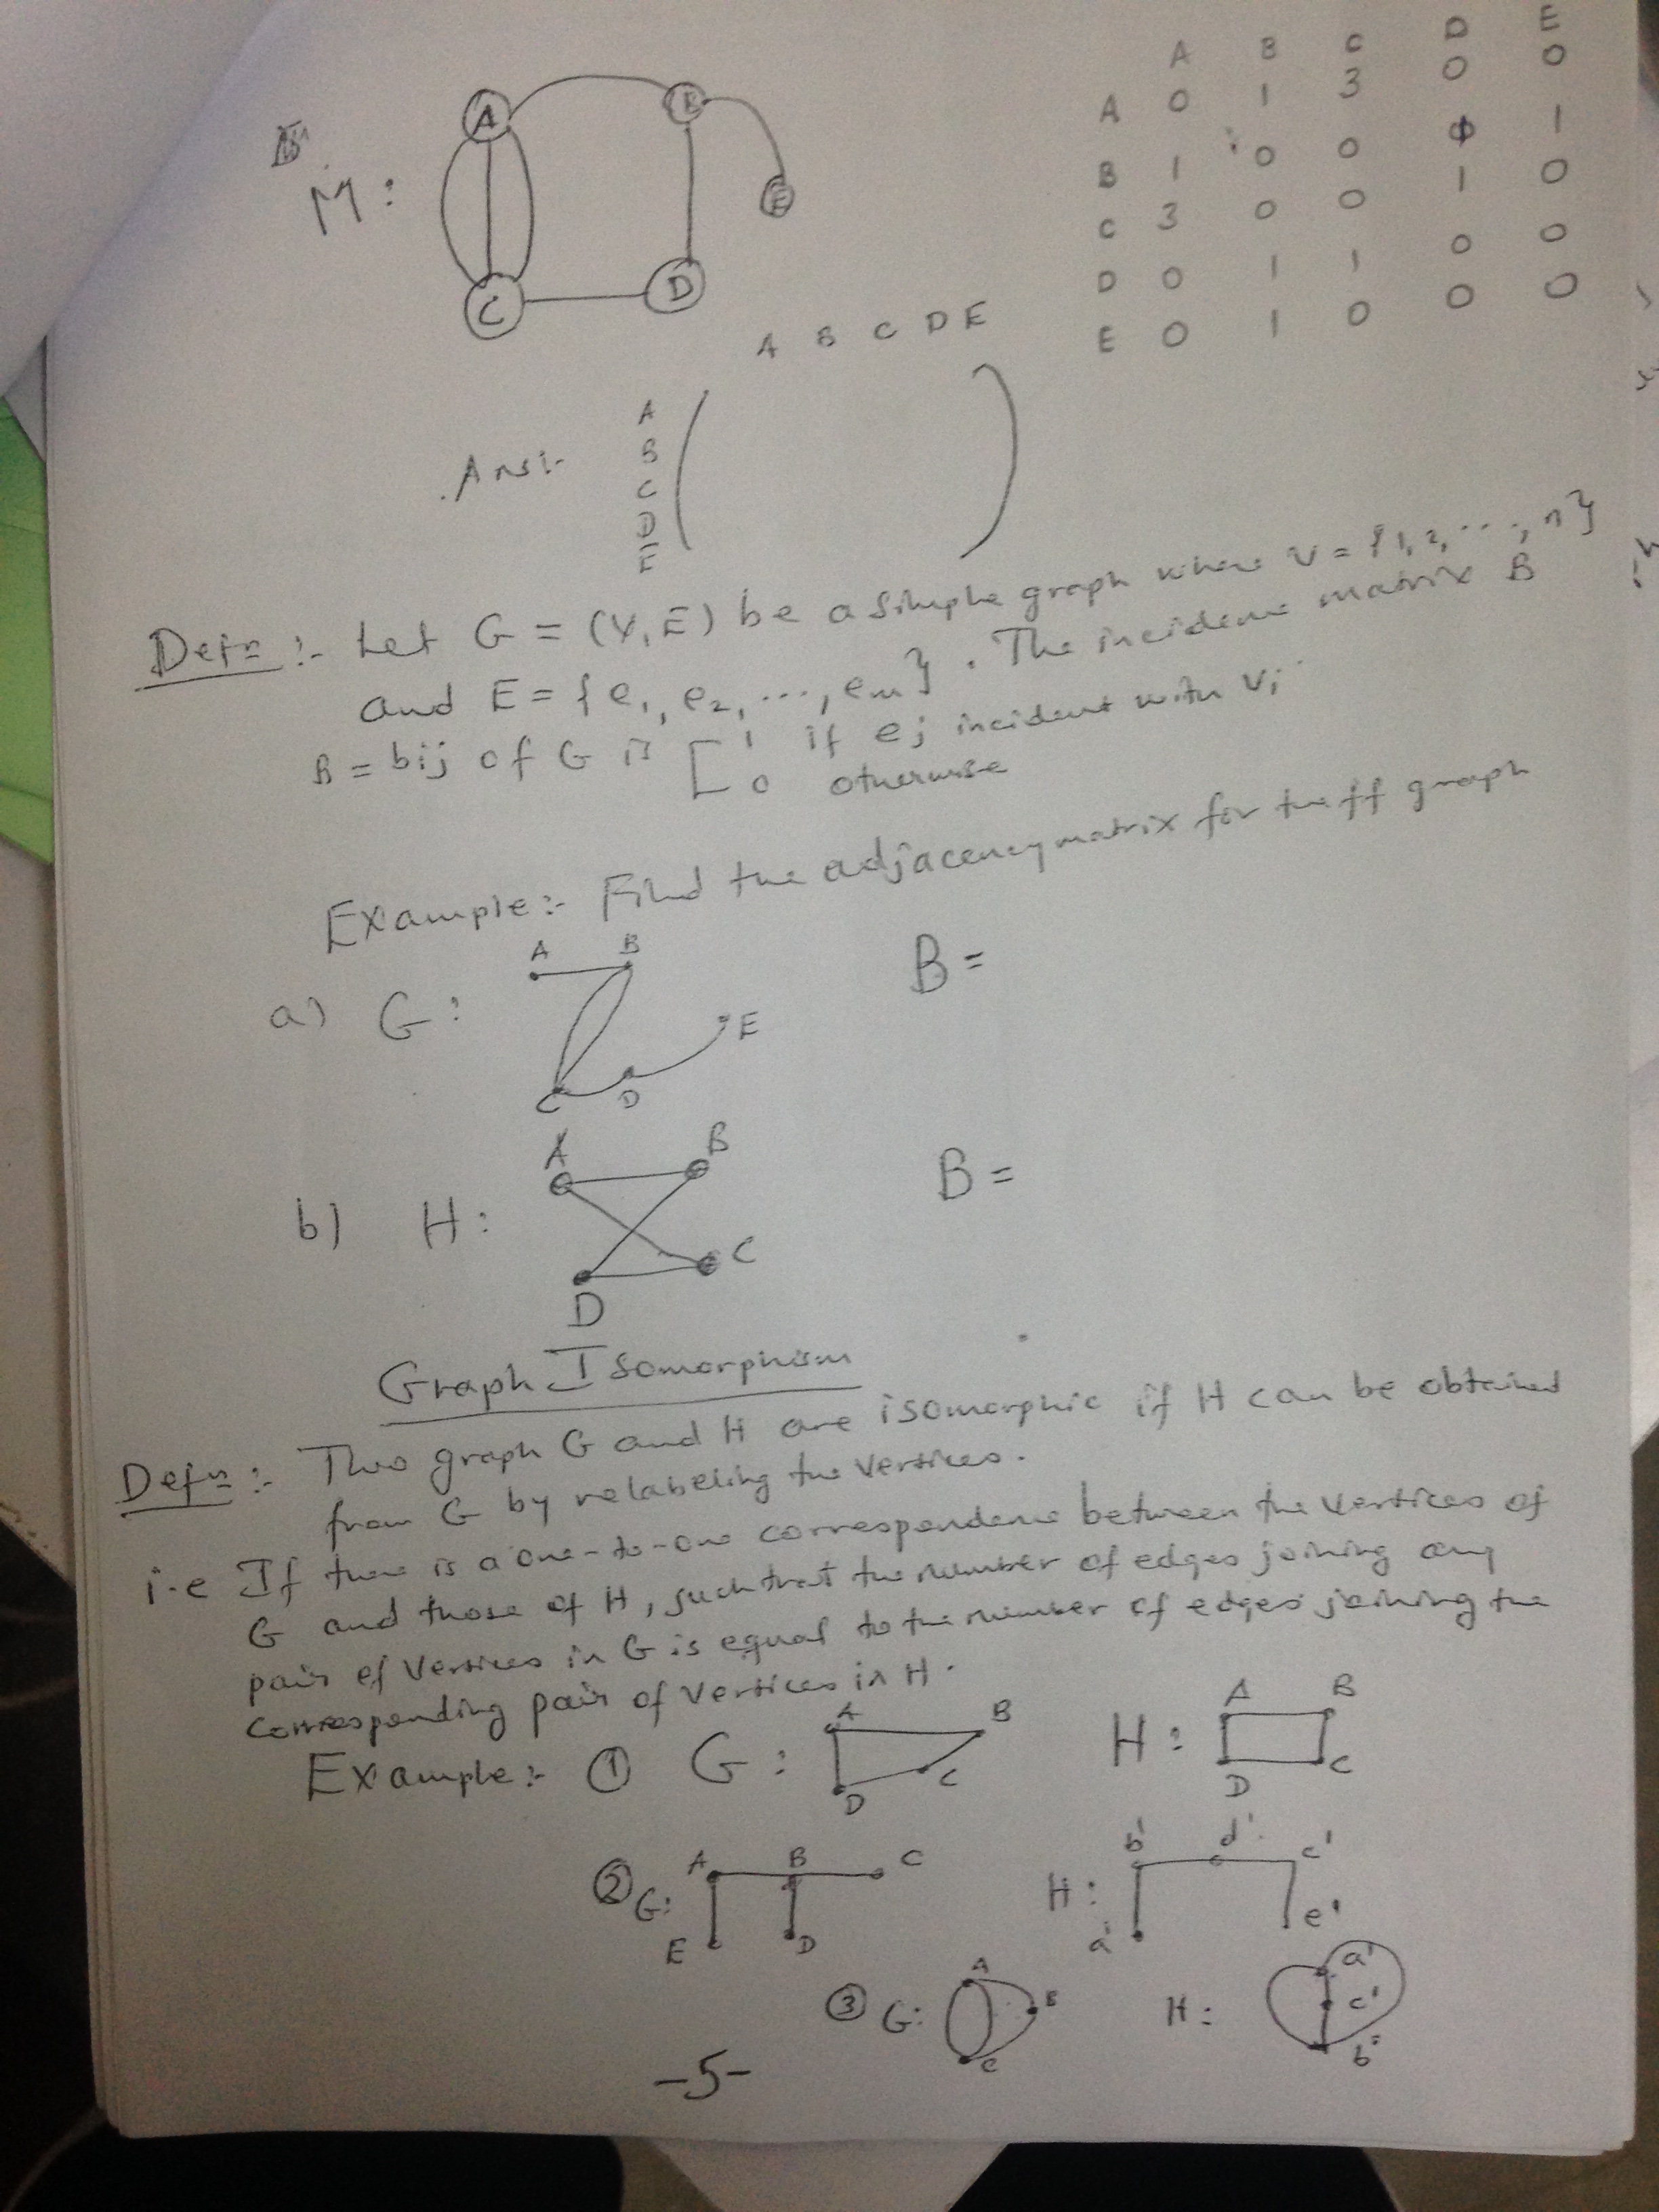 A B C D E
A 0 1 3 0 0
B 1 0 0 1
C 3 0 0 1 0
D 0 1 1 0 0
E 0 1 0 0 0
M:
A
B
E
C
D
A B C D E
Ans:-
A
B
C
D
E
Defn :- Let G = (V, E) be a simple graph where V = {1, 2, ..., n}
and E = {e1, e2, ..., em}. The incidence matrix B
B = bij of G is [ 1 if ej incident with vi
0 otherwise
Example:- Find the adjacency matrix for the ff graph
a) G:
A B
E
C D
B =
b) H:
A B
C
D
B =
Graph Isomorphism
Defn :- Two graph G and H are isomorphic if H can be obtained
from G by relabeling the vertices.
i.e If there is a one-to-one correspondence between the vertices of
G and those of H, such that the number of edges joining any
pair of vertices in G is equal to the number of edges joining the
corresponding pair of vertices in H.
Example:- ① G: A B C D H: A B D C
② G: A B C E D H: b' d' c' a' e'
③ G: A B C H: a' c' b'
-5-